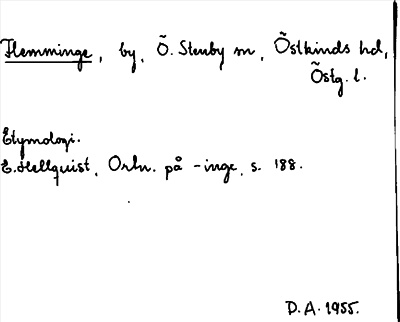 Flemminge, by, Ö. Stenby sn, Östkinds hd,
Östg. l.
Etymologi.
E. Hellquist, Ortn. på -inge, s. 188.
D. A. 1955.